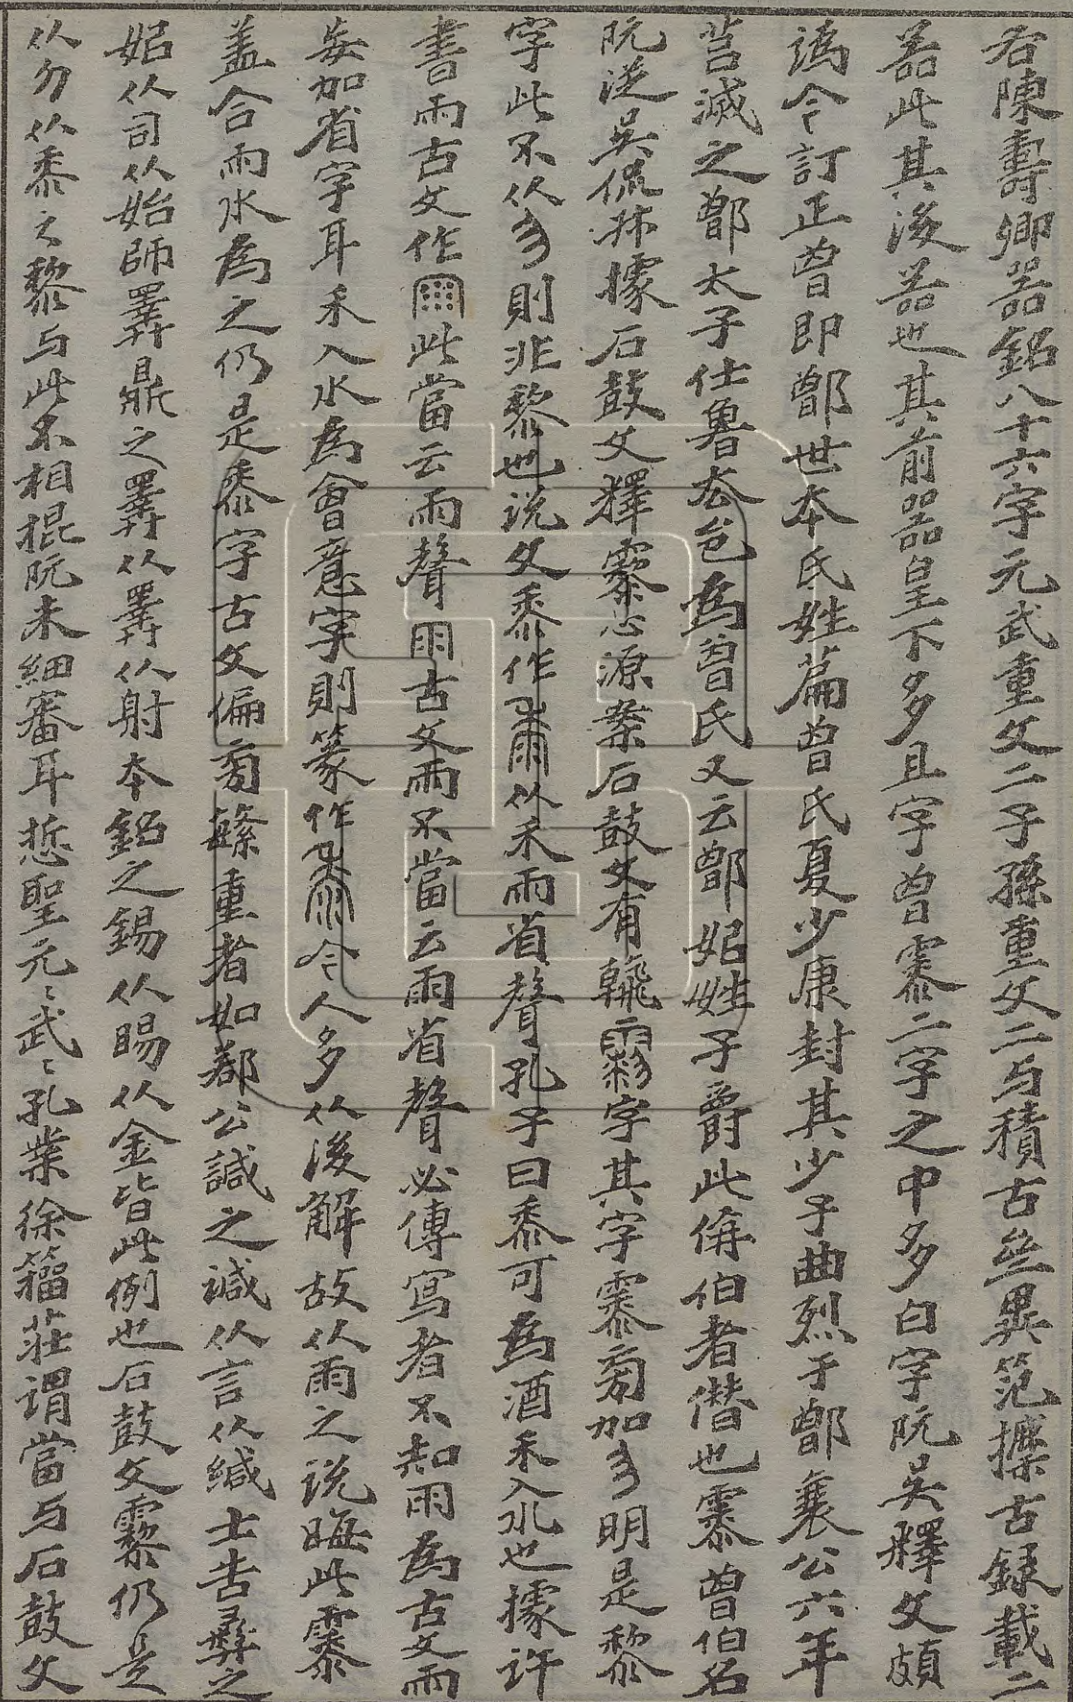 右陳壽卿器銘八十六字元武重文二子孫重文二与積古𠫤異范攗古録載二
器此其後器也其前器皇下多且字曾霥二字之中多白字阮吳釋文頗
譌今訂正曾即鄫世本氏姓篇曾氏夏少康封其少子曲烈于鄫襄公六年
莒滅之鄫太子仕魯去邑為曾氏又云鄫姒姓子爵此偁伯者僭也霥曾伯名
阮从吳侃叔據石鼓文釋霥心源案石鼓文有霥字其字霥旁加㐱明是黎
字此不从㐱則非黎也说文黍作从禾雨省聲孔子曰黍可為酒禾入水也據许
書雨古文作此當云雨聲古文雨不當云雨省聲必傳寫者不知雨為古文而
妄加省字耳禾入水為會意字則篆作今人多从後解故从雨之说晦此霥
盖合雨水為之仍是黍字古文偏旁緐重者如鄀公諴之諴从言从緘士告彝之
姤从司从始師䍩鼎之䍩从䍩从射本銘之錫从賜从金皆此例也石鼓文黎仍是
从勿从黍之黎与此不相掍阮未細審耳悊聖元〻武〻孔業徐籀莊谓當与石鼓文